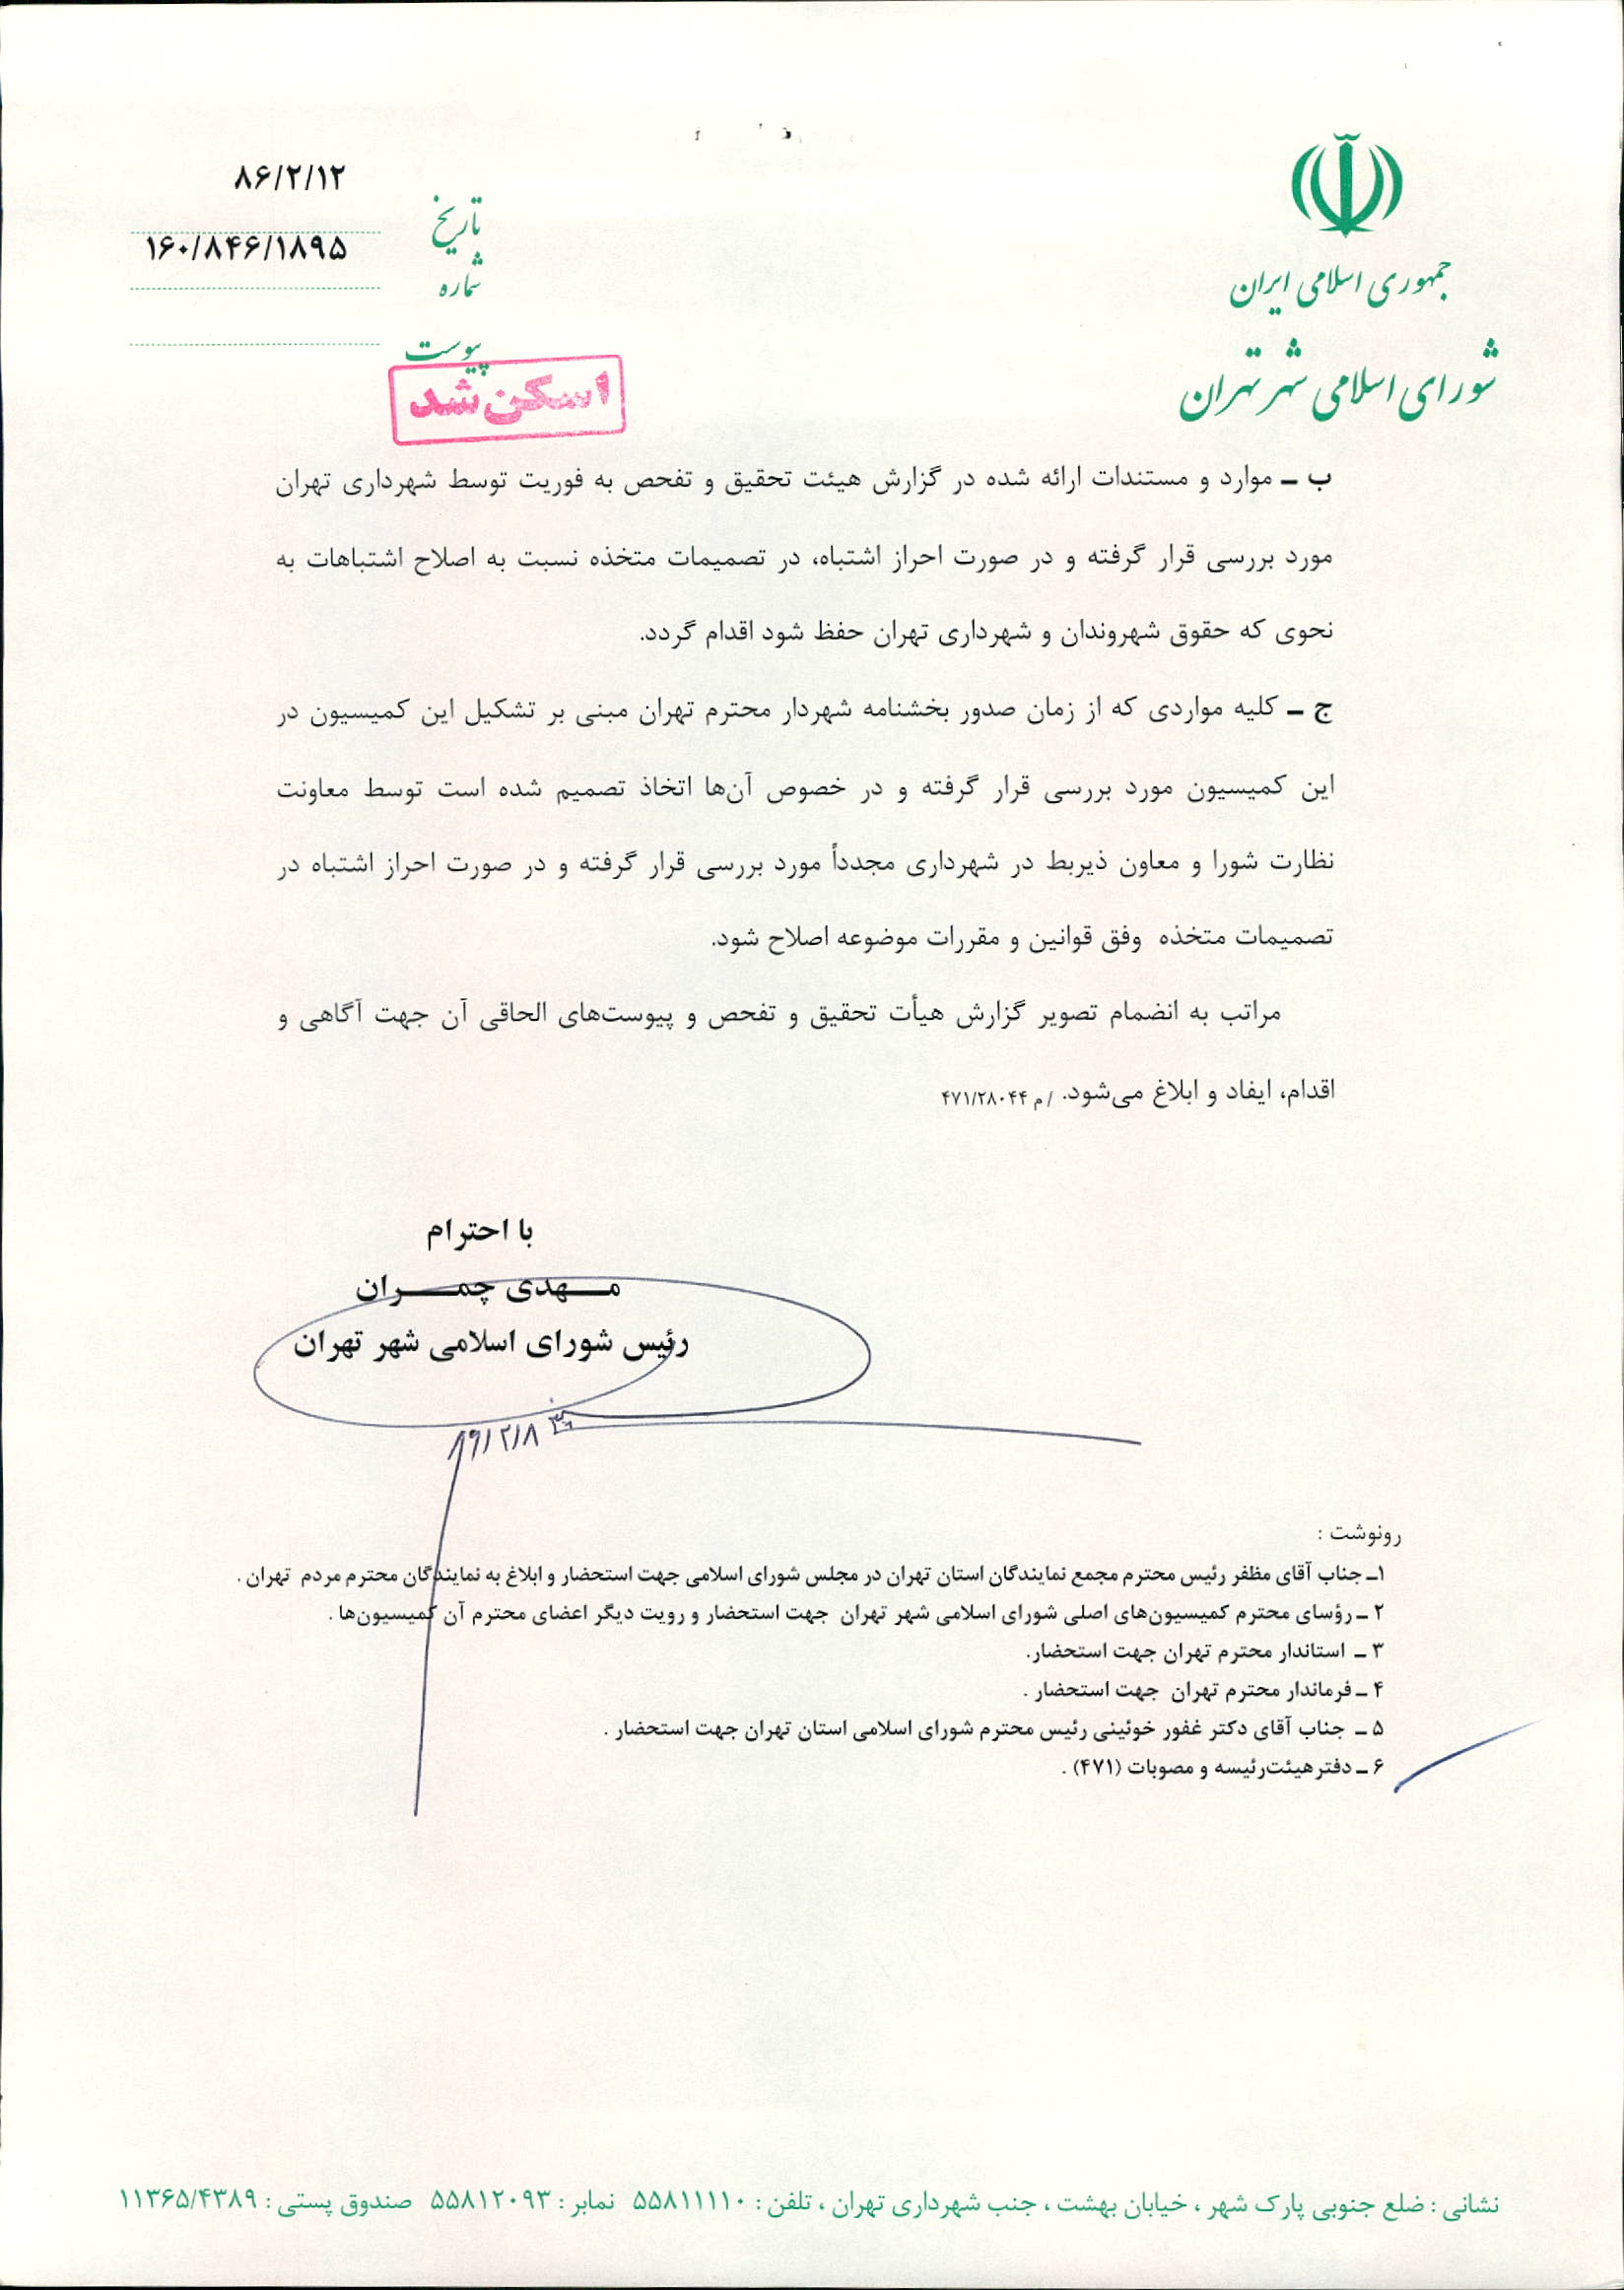 جمهوری اسلامی ایران
شورای اسلامی شهر تهران
تاریخ ۸۶/۲/۱۲
شماره ۱۶۰/۸۴۶/۱۸۹۵
پیوست
اسکن شد
ب ـ موارد و مستندات ارائه شده در گزارش هیئت تحقیق و تفحص به فوریت توسط شهرداری تهران
مورد بررسی قرار گرفته و در صورت احراز اشتباه، در تصمیمات متخذه نسبت به اصلاح اشتباهات به
نحوی که حقوق شهروندان و شهرداری تهران حفظ شود اقدام گردد.
ج ـ کلیه مواردی که از زمان صدور بخشنامه شهردار محترم تهران مبنی بر تشکیل این کمیسیون در
این کمیسیون مورد بررسی قرار گرفته و در خصوص آن‌ها اتخاذ تصمیم شده است توسط معاونت
نظارت شورا و معاون ذیربط در شهرداری مجدداً مورد بررسی قرار گرفته و در صورت احراز اشتباه در
تصمیمات متخذه وفق قوانین و مقررات موضوعه اصلاح شود.
مراتب به انضمام تصویر گزارش هیأت تحقیق و تفحص و پیوست‌های الحاقی آن جهت آگاهی و
اقدام، ایفاد و ابلاغ می‌شود. / م ۴۷۱/۲۸۰۴۴
با احترام
مـــهدی چمـــــران
رئیس شورای اسلامی شهر تهران
۸۶/۲/۸
رونوشت :
۱ـ جناب آقای مظفر رئیس محترم مجمع نمایندگان استان تهران در مجلس شورای اسلامی جهت استحضار و ابلاغ به نمایندگان محترم مردم تهران .
۲ ـ رؤسای محترم کمیسیون‌های اصلی شورای اسلامی شهر تهران جهت استحضار و رویت دیگر اعضای محترم آن کمیسیون‌ها .
۳ ـ استاندار محترم تهران جهت استحضار.
۴ ـ فرماندار محترم تهران جهت استحضار .
۵ ـ جناب آقای دکتر غفور خوئینی رئیس محترم شورای اسلامی استان تهران جهت استحضار .
۶ ـ دفتر هیئت‌رئیسه و مصوبات (۴۷۱) .
نشانی : ضلع جنوبی پارک شهر ، خیابان بهشت ، جنب شهرداری تهران ، تلفن : ۵۵۸۱۱۱۱۰ نمابر : ۵۵۸۱۲۰۹۳ صندوق پستی : ۱۱۳۶۵/۴۳۸۹